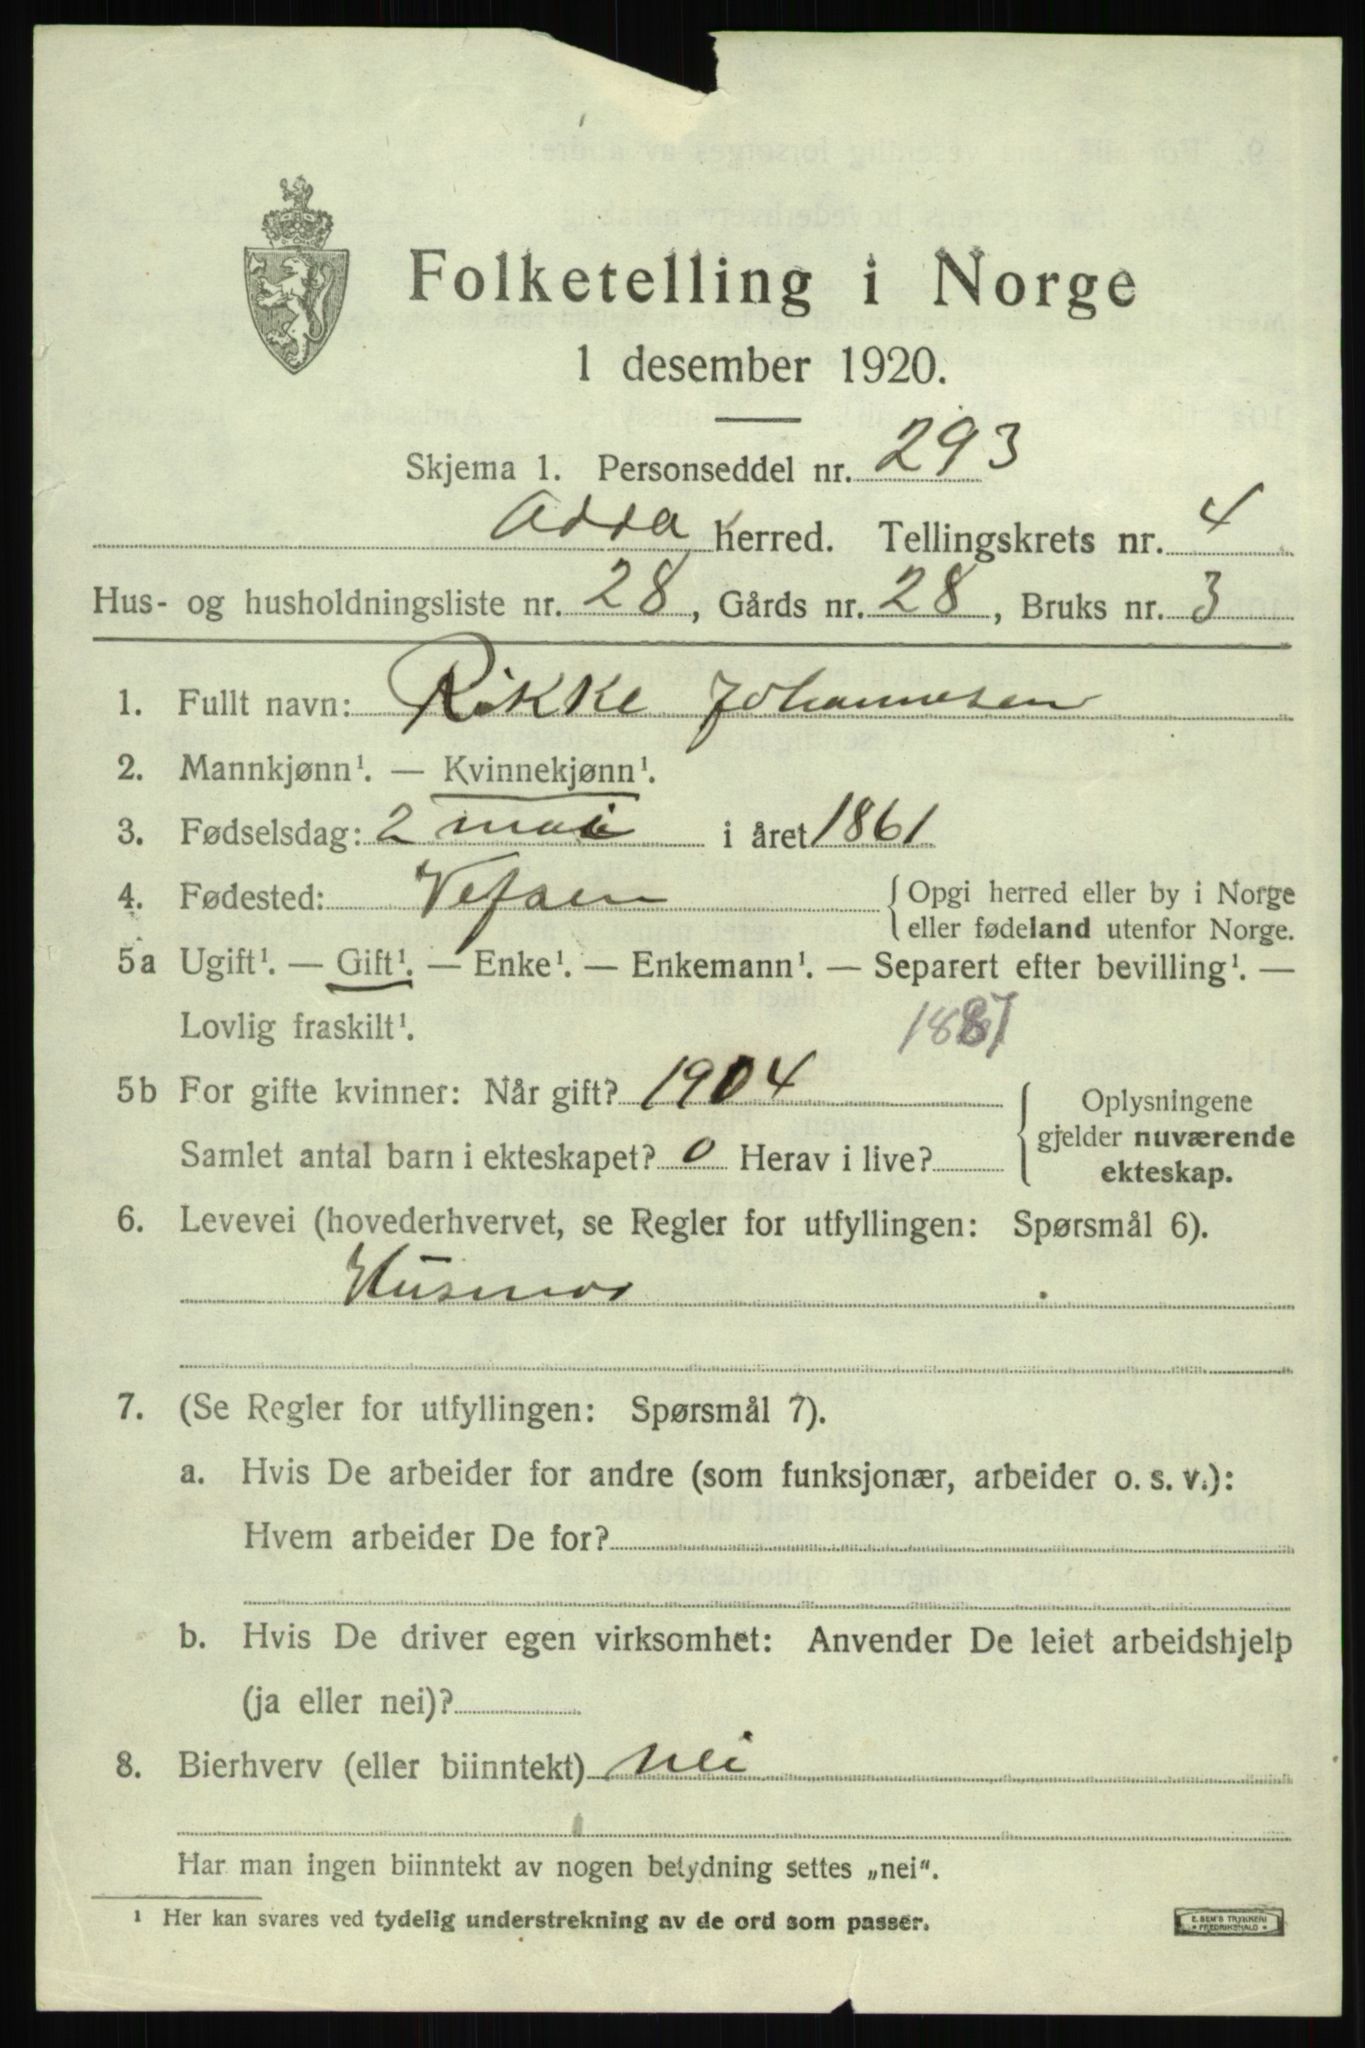 Folketelling i Norge
1 desember 1920.
Skjema 1. Personseddel nr. 293
Adda herred. Tellingskrets nr. 4
Hus- og husholdningsliste nr. 28, Gårds nr. 28, Bruks nr. 3
1. Fullt navn: Rikke Johannesen
2. Mannkjønn¹. — Kvinnekjønn¹.
3. Fødselsdag: 2 mai i året 1861
4. Fødested: Vefsen { Opgi herred eller by i Norge
eller fødeland utenfor Norge.
5a Ugift¹. — Gift¹. — Enke¹. — Enkemann¹. — Separert efter bevilling¹. —
Lovlig fraskilt¹. 1887
5b For gifte kvinner: Når gift? 1904 { Oplysningene
gjelder nuværende
Samlet antal barn i ekteskapet? 0 Herav i live?
ekteskap.
6. Levevei (hovederhvervet, se Regler for utfyllingen: Spørsmål 6).
Husmor
7. (Se Regler for utfyllingen: Spørsmål 7).
a. Hvis De arbeider for andre (som funksjonær, arbeider o. s. v.):
Hvem arbeider De for?
b. Hvis De driver egen virksomhet: Anvender De leiet arbeidshjelp
(ja eller nei)?
8. Bierhverv (eller biinntekt) nei
Har man ingen biinntekt av nogen betydning settes „nei".
¹ Her kan svares ved tydelig understrekning av de ord som passer.
E. SEM'S TRYKKERI
FREDRIKSHALD